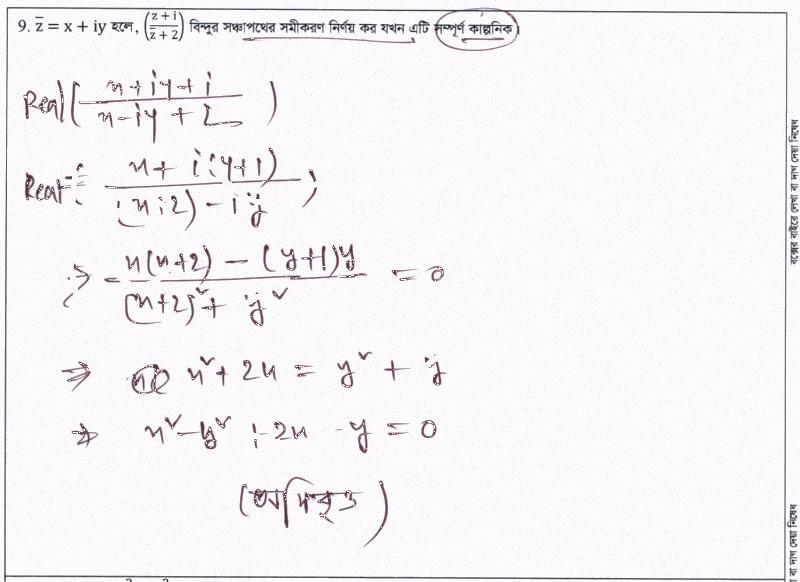 9. z̅ = x + iy হলে, ((z + i)/(z̅ + 2)) বিন্দুর সঞ্চারপথের সমীকরণ নির্ণয় কর যখন এটি সম্পূর্ণ কাল্পনিক।
Real ( (x+iy+i)/(x-iy+2) )
(x + i(y+1))/((x+2) - iy)
⇒ (x(x+2) - (y+1)y)/((x+2)² + y²) = 0
⇒ x² + 2x = y² + y
⇒ x² - y² + 2x - y = 0
(অধিবৃত্ত)
বক্সের বাইরে লেখা বা দাগ দেয়া নিষেধ
বা দাগ দেয়া নিষেধ